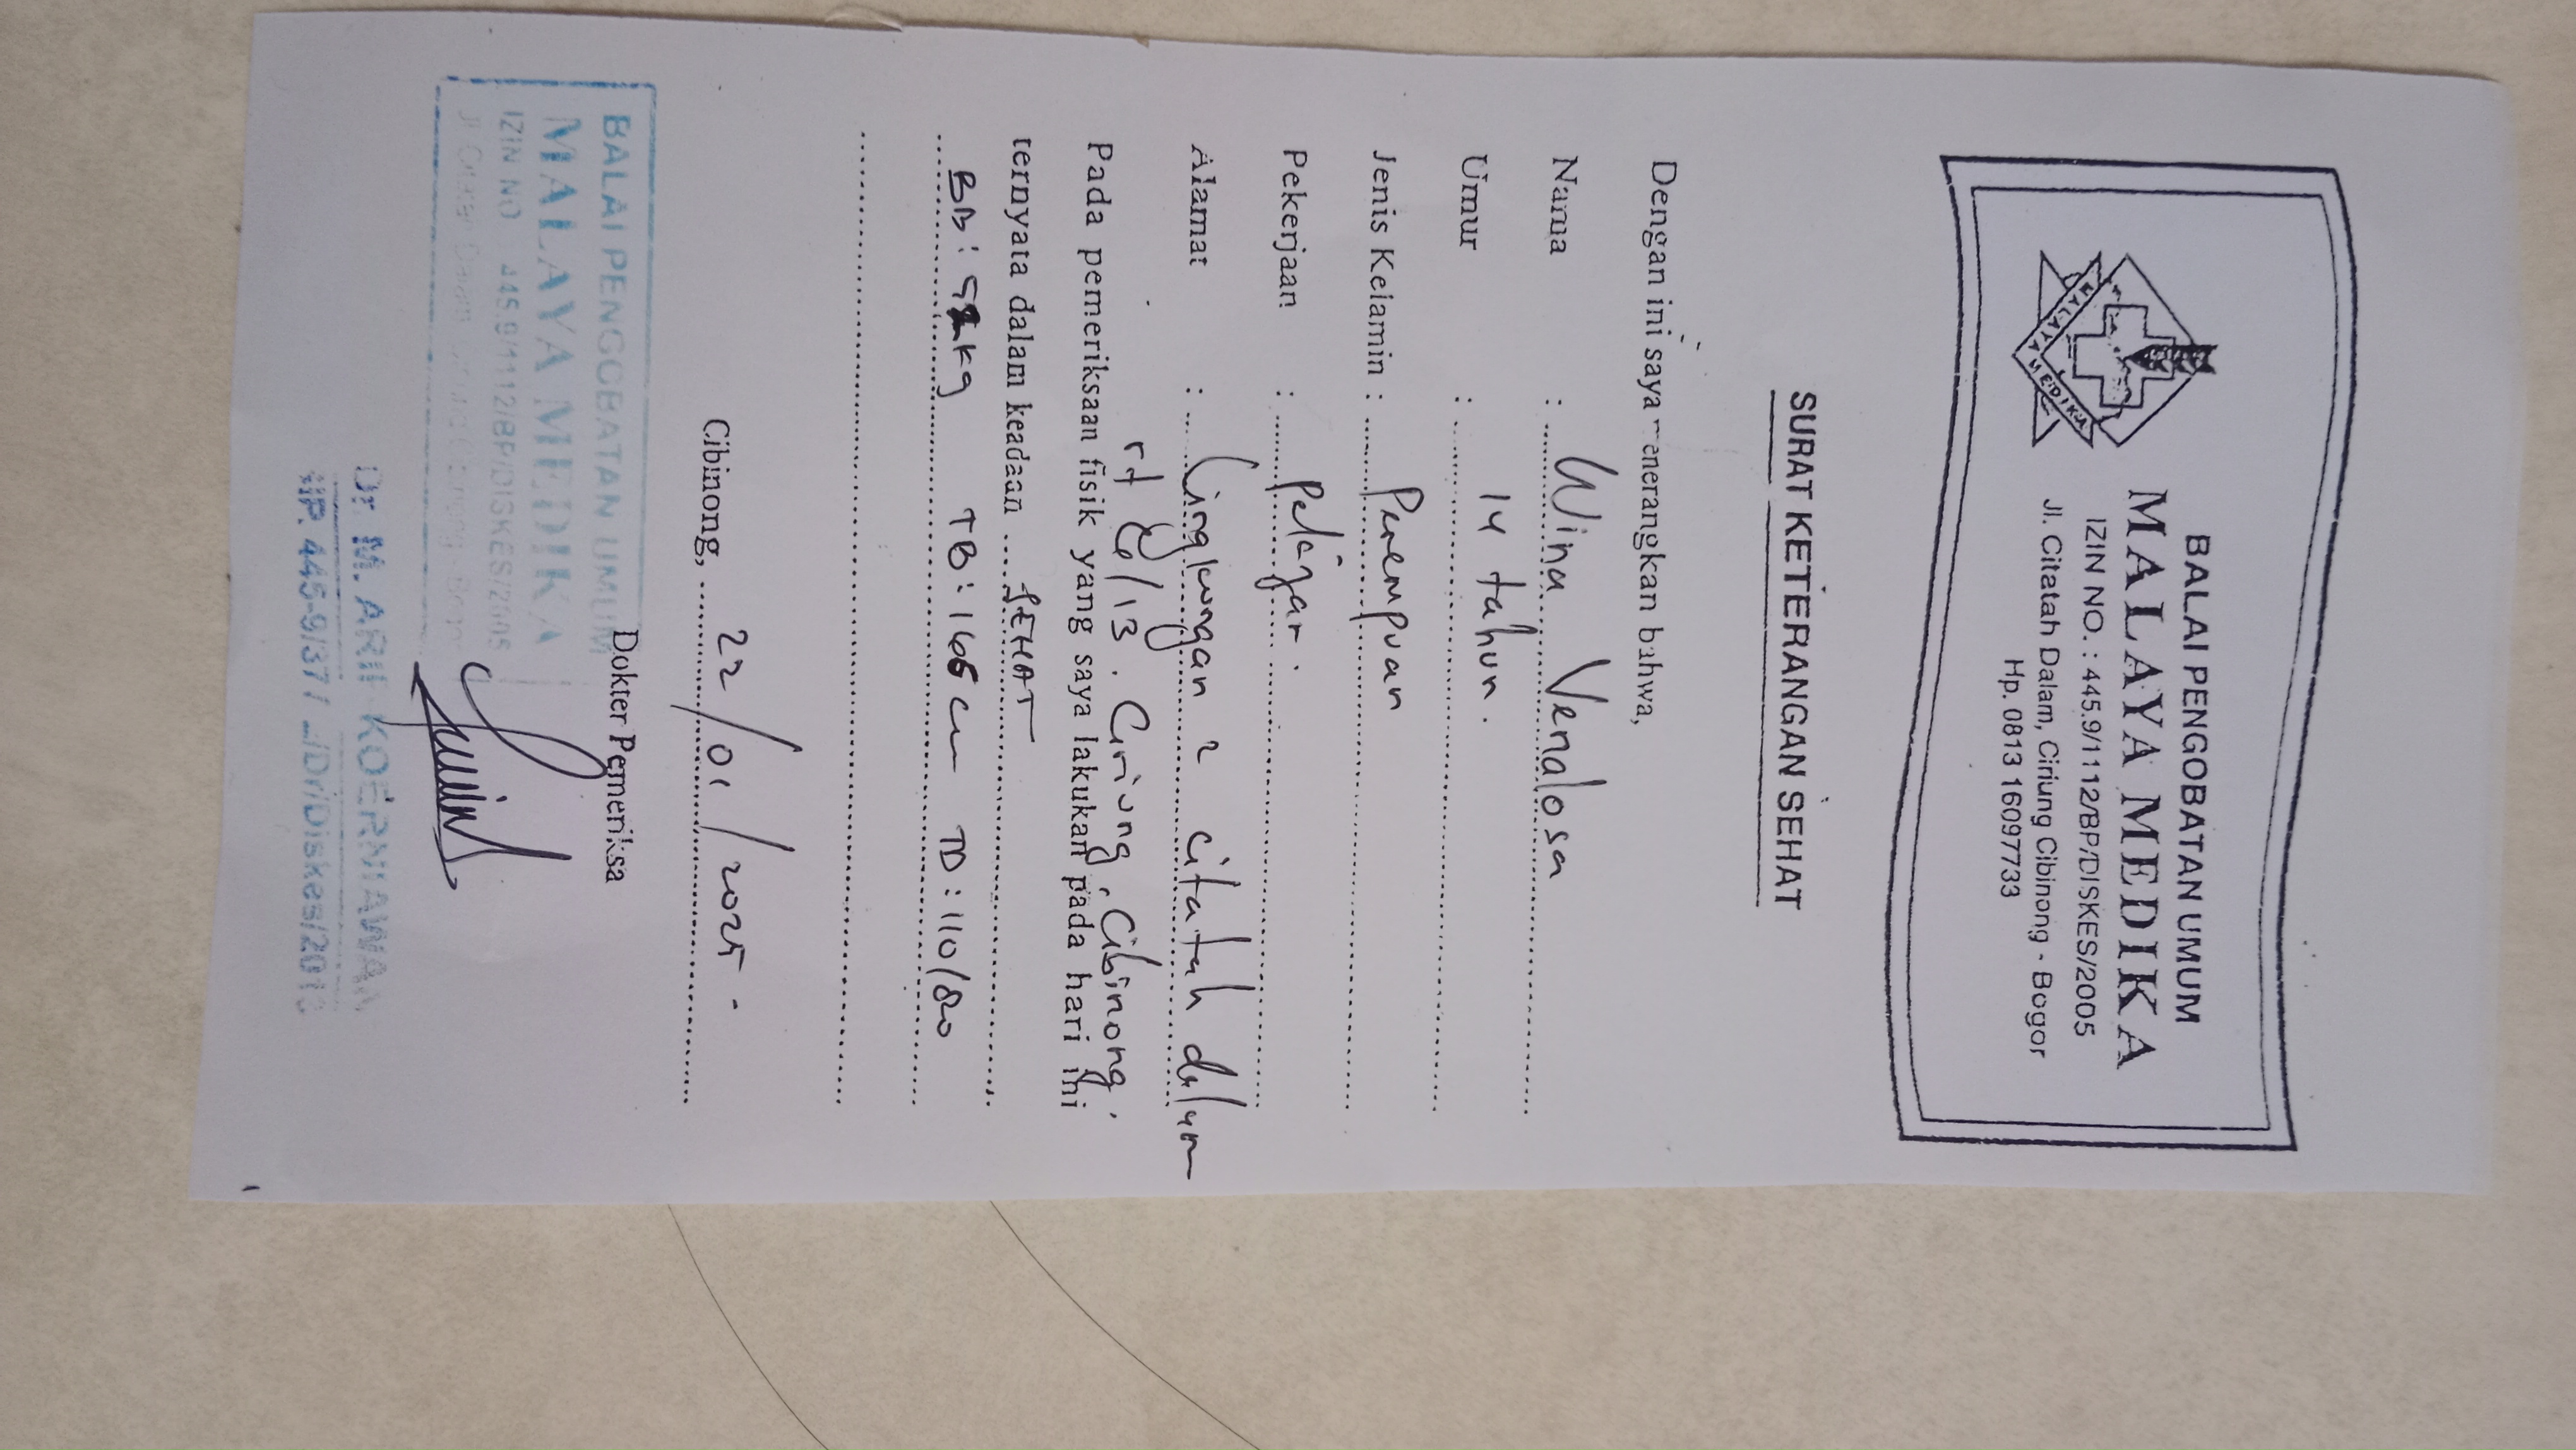 BALAI PENGOBATAN UMUM
MALAYA MEDIKA
IZIN NO. : 445.9/1112/BP/DISKES/2005
Jl. Citatah Dalam, Ciriung Cibinong - Bogor
Hp. 0813 16097733
MALAYA MEDIKA
SURAT KETERANGAN SEHAT
Dengan ini saya menerangkan bahwa,
Nama : Wina Venalosa
Umur : 14 tahun.
Jenis Kelamin : Perempuan
Pekerjaan : Pelajar.
Alamat : Lingkungan 2 citatah dalam
rt 06/13. Ciriung, Cibinong.
Pada pemeriksaan fisik yang saya lakukan pada hari ini
ternyata dalam keadaan SEHAT
BB : kg TB : 166 cm TD : 110/80
Cibinong, 22/01/2025 -
Dokter Pemeriksa
BALAI PENGOBATAN UMUM
MALAYA MEDIKA
IZIN NO 445.9/1112/BP/DISKES/2005
Dr M. ARIF KOERNIAWAN
445-9/377 /Dr/Diskes/